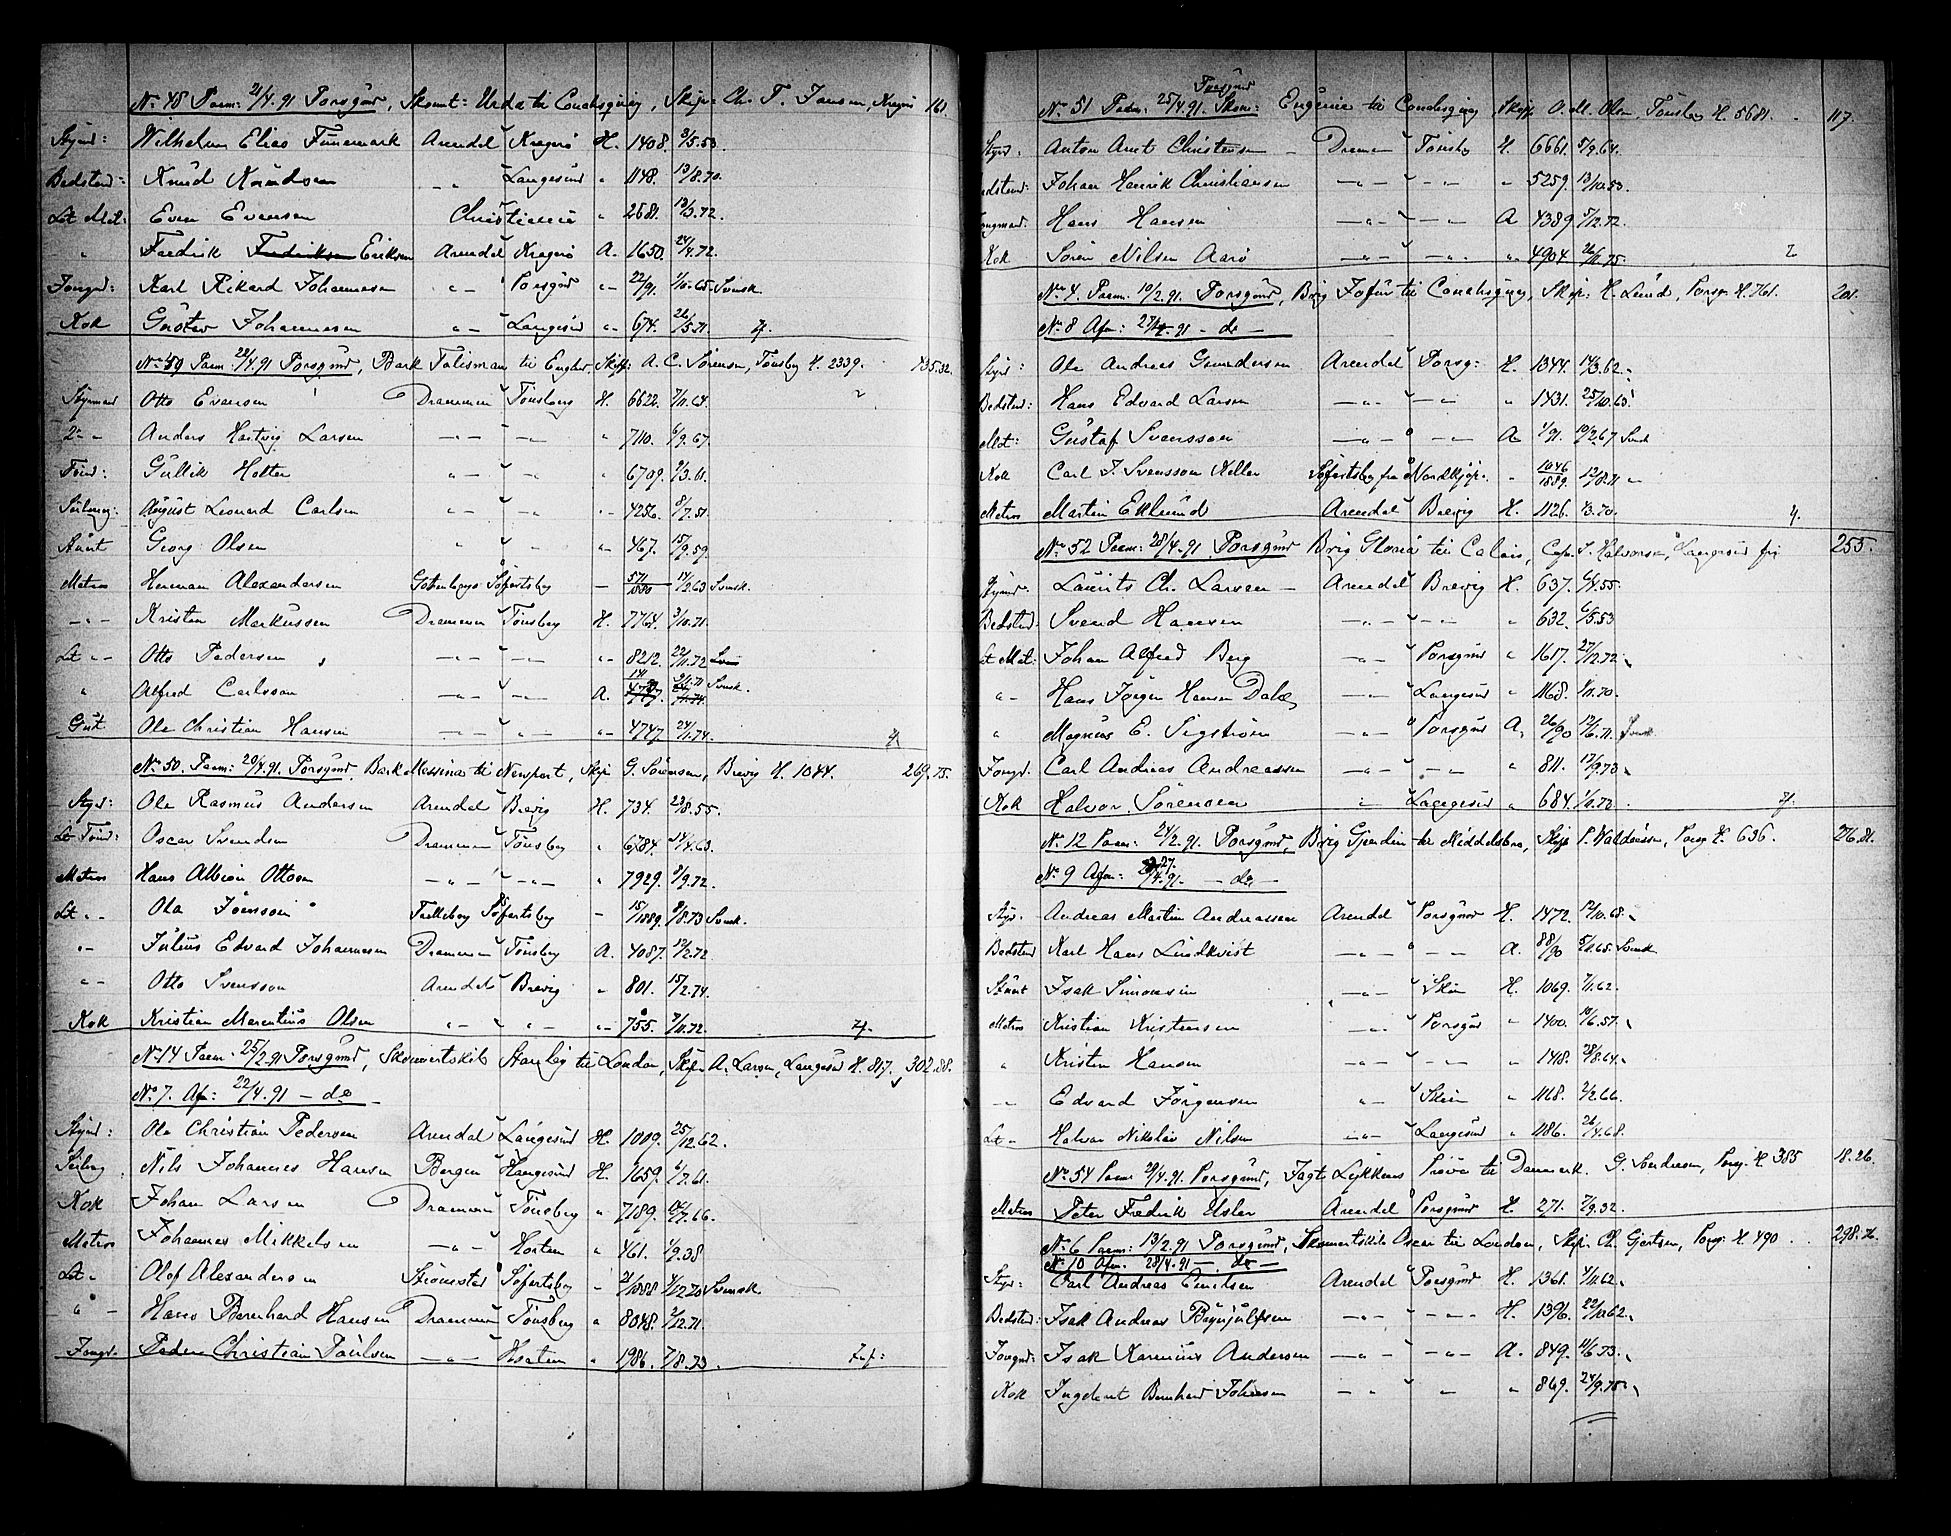 No 48 Paam: 21/4.91 Porsgrund, Skonnt: Urda til Conahsquay, Skip: Chr. T. Jansen, Kragerø 161.
Styrmd: Wilhelm Elias Finnemark Arendal Kragerø H. 1408. 3/5.53.
Bedstmd: Knud Knudsen - " - Langesund " 1148. 13/8.70.
Let Mat: Even Evensen Christiania " 2681. 13/3.72.
" Fredrik Eriksen Arendal Kragerø A. 1650. 24/4.72.
Jungmd: Karl Rikard Johannesen " - Porsgrd " - 22/91. 1/6.65. Svensk.
Kok Gustav Johannesen " - Langesund " - 674. 26/5.71. 7.
No 49 Paam: 22/4.91 Porsgrund, Bark Talisman til England, Skip: A. C. Sørensen, Tønsberg H. 2339. 435.32.
Styrmand Otto Evensen Drammen Tønsberg H. 6622. 7/11.64.
2 " - Anders Hartvig Larsen - " - - " - " 7110. 6/9.67.
Tømd: Gullik Holten " - " - " 6709. 9/3.61.
Seilmag: August Leonard Carlsen " - " - " - 4256. 8/7.51.
Stuert Georg Olsen " " - " - 467. 15/9.59.
Matros Herman Alexandersen Gøtenborgs Søfartsby - 57/1880 14/2.63 Svensk.
- " - Kristian Markussen Drammen Tønsberg H. 7764. 3/10.71.
Let " - Otto Pedersen - " - - " - " - 8212. 22/11.72
" Alfred Carlsson - " - - " - A. Svensk.
Gut Ole Christian Hansen - " - " - " - 4747. 24/1.74.
No 50. Paam: 20/4.91. Porsgrund, Bark Messina til Newport, Skip G. Sørensen, Brevig H. 1044. 269.75.
Styr: Ole Rasmus Andersen Arendal Brevig H. 734. 23/8.55.
Let Tømd: Oscar Svendsen Drammen Tønsberg " 6784. 14/4.63.
Matros Hans Albion Ottosen - " - - " - " 7929. 9/9.72.
Let " - Ola Jönsson Trelleborg Søfartsby - 15/1889. 8/8.73 Svensk.
" - Julius Edvard Johannesen Drammen Tønsberg A. 4087. 12/2.72
" - Otto Svensson Arendal Brevig " 801. 15/2.74.
Kok Kristian Marentius Olsen " - " - " - 755. 7/11.72. 7.
No 14 Paam: 25/2.91 Porsgrund, Skonnertskib Stanley til London, Skip A. Larsen, Langesund H. 817. 302.88.
No 7. Afm: 22/4.91 - do -
Styrmd: Ole Christian Pedersen Arendal Langesund H. 1009. 25/12.62.
Seilmag Nils Johannes Hansen Bergen Haugesund H. 1659. 6/7.61.
Kok Johan Larsen Drammen Tønsberg " 7189.
Matros Johannes Mikkelsen - " - Horten " 461. 1/9.38
Let " Olof Alexanderson Strømstad Søfartsby - 21/1888 3/12.70 Svensk.
" - Hans Bernhard Hansen Drammen Tønsberg " 8048. 2/12.71.
Jungd. Peder Christian Paulsen - " - Horten " 1986. 7/8.73.
Porsgrund
No 51 Paam: 25/4.91. Skon: Eugenie til Conahsquay, Skip O. M. Olsen, Tønsberg H. 5681. 117.
Styrd: Anton Amt Christensen - Drammen Tønsbg H. 6661. 5/9.64.
Bedstmd: Johan Henrik Christiansen - " - - " - " 5259. 13/10.53.
Jungmand: Hans Hansen - " - - " - A 4389 5/12.72.
Kok Søren Nilsen Aarø - " - - " - " 4904. 26/11.75.
No 4. Paam: 10/2.91. Porsgrund, Brig Tofur til Conahsquay, Skip: H. Lund, Porsgr H. 761. 201.
No 8 Afm: 27/4.91 - do -
Styrd: Ole Andreas Gundersen Arendal Porsg: H. 1344. 14/3.62.
Bedstmd: Hans Edvard Larsen - " - - " - " 1431. 25/10.65.
Mat: Gustaf Svensson - " - - " - A 1/91. 10/2.67 Svensk
Kok Carl J. Svensson Keller Søfartsby fra Nordkjøp: " 1046/1889. 12/8.71 " -
Matros Martin Eklund Arendal Brevig H. 1126. /3.70. 4.
No 52 Paam: 28/4.91. Porsgrund Brig Gloria til Calais, Cap. S. Halvorsen, Langesund 255.
Styrmd: Laurits Chr. Larsen - Arendal Brevig H. 637. 6/4.55.
Bedstmd: Svend Hansen - " - - " - " 632. 6/5.53
Let Mat: Johan Alfred Berg - " - Porsgrund " 1617. 27/12.72.
" - Hans Jørgen Hansen Dale - " - Langesund " 1168. 1/11.70.
" Magnus E. Sigström - " - Porsgrd A. 26/90 12/6.71. Svensk
Jungd: Carl Andreas Andreassen - " - - " - " 811. 17/9.73.
Kok Halvor Sørensen " Langesund " 684. 1/11.72. 7.
No 12 Paam: 24/2.91. Porsgrund, Brig Gjendin til Middelsbro, Skip P. Waldersen, Porsgr H. 636. 276.81.
No 9 Afm: 27/4.91. - do -
Styr: Andreas Martin Andreassen Arendal Porsgrund H. 1472. 12/10.68.
Bedstmd Karl Hans Lindkvist - " - - " - A. 88/90 5/11.65. Svensk
Stuert Isak Simonsen - " - Skien H. 1069. 7/11.62.
Matros Kristian Kristensen - " - Porsgrd " 1400. 10/6.57.
" Kristen Hansen " - " - " 1418. 28/8.64.
- " - Edvard Jörgensen " - Skien " 1168. 2/2.66.
Let - Halvor Nikolai Nilsen - " - Langesund " 1186. 26/4.68.
No 54 Paam 29/4.91. Porsgrund, Jagt Lykkens Prøve til Danmark. G. Sondresen, Porsgr. H 385 18.26.
Matros Peter Fredrik Esler Arendal Porsgrund H 271. 7/9.32.
No 6 Paam: 13/2.91 Porsgrund, Skonnertskib Oscar til London, Skip. Ch. Gjertsen, Porsg: H. 490. 298.76.
No 10 Afm. 28/4.91 - do -
Styr: Carl Andreas Emilsen Arendal Porsgrund H. 1361. 4/11.62.
Bedstmd: Isak Andreas Brynjulfsen - " - - " - H. 1396. 22/12.62.
Jungmd: Isak Karenius Andersen - " - - " - A. 849. 11/6.73.
Kok Ingebret Bernhard Johnsen - " - " - " 869. 24/9.75.